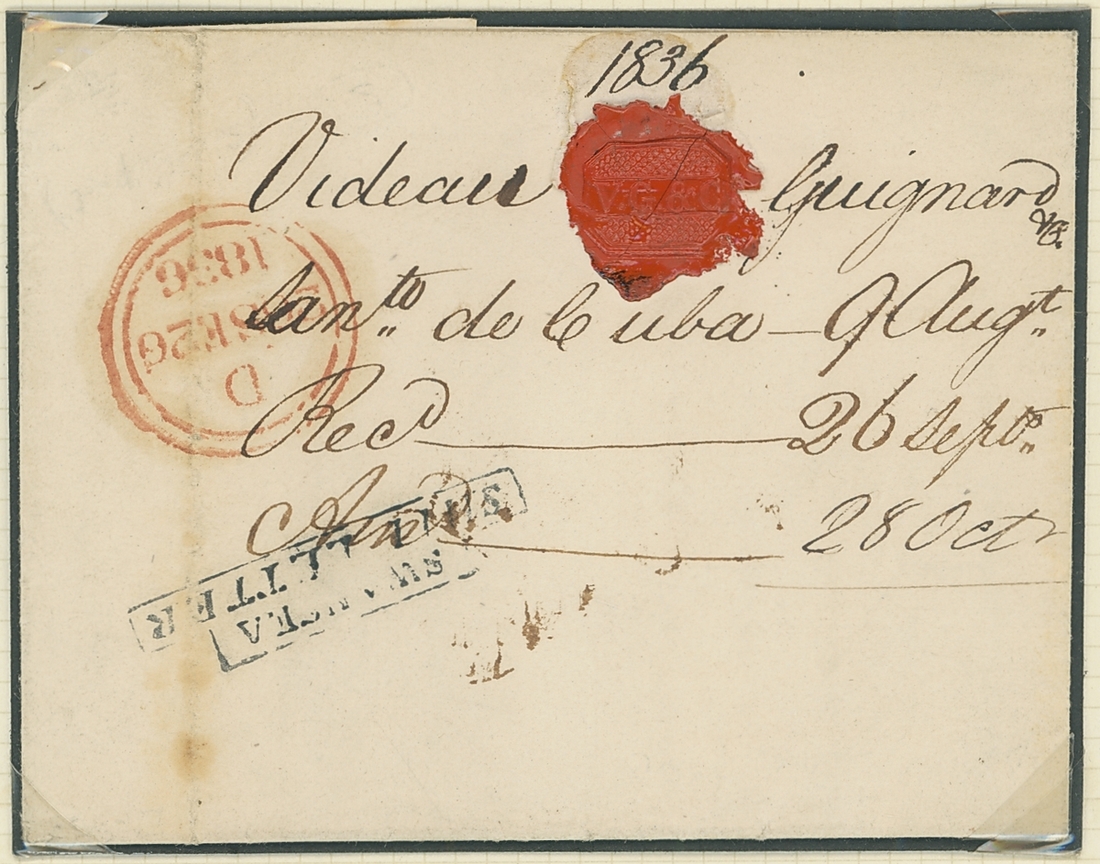 1836
Videau Guignard &C.
V.G & C
Santo de Cuba – 9 Augt.
Recd 26 Septr.
Ansd 28 Oct
D
26 SE 26
1836
SHIP LETTER
SWANSEA